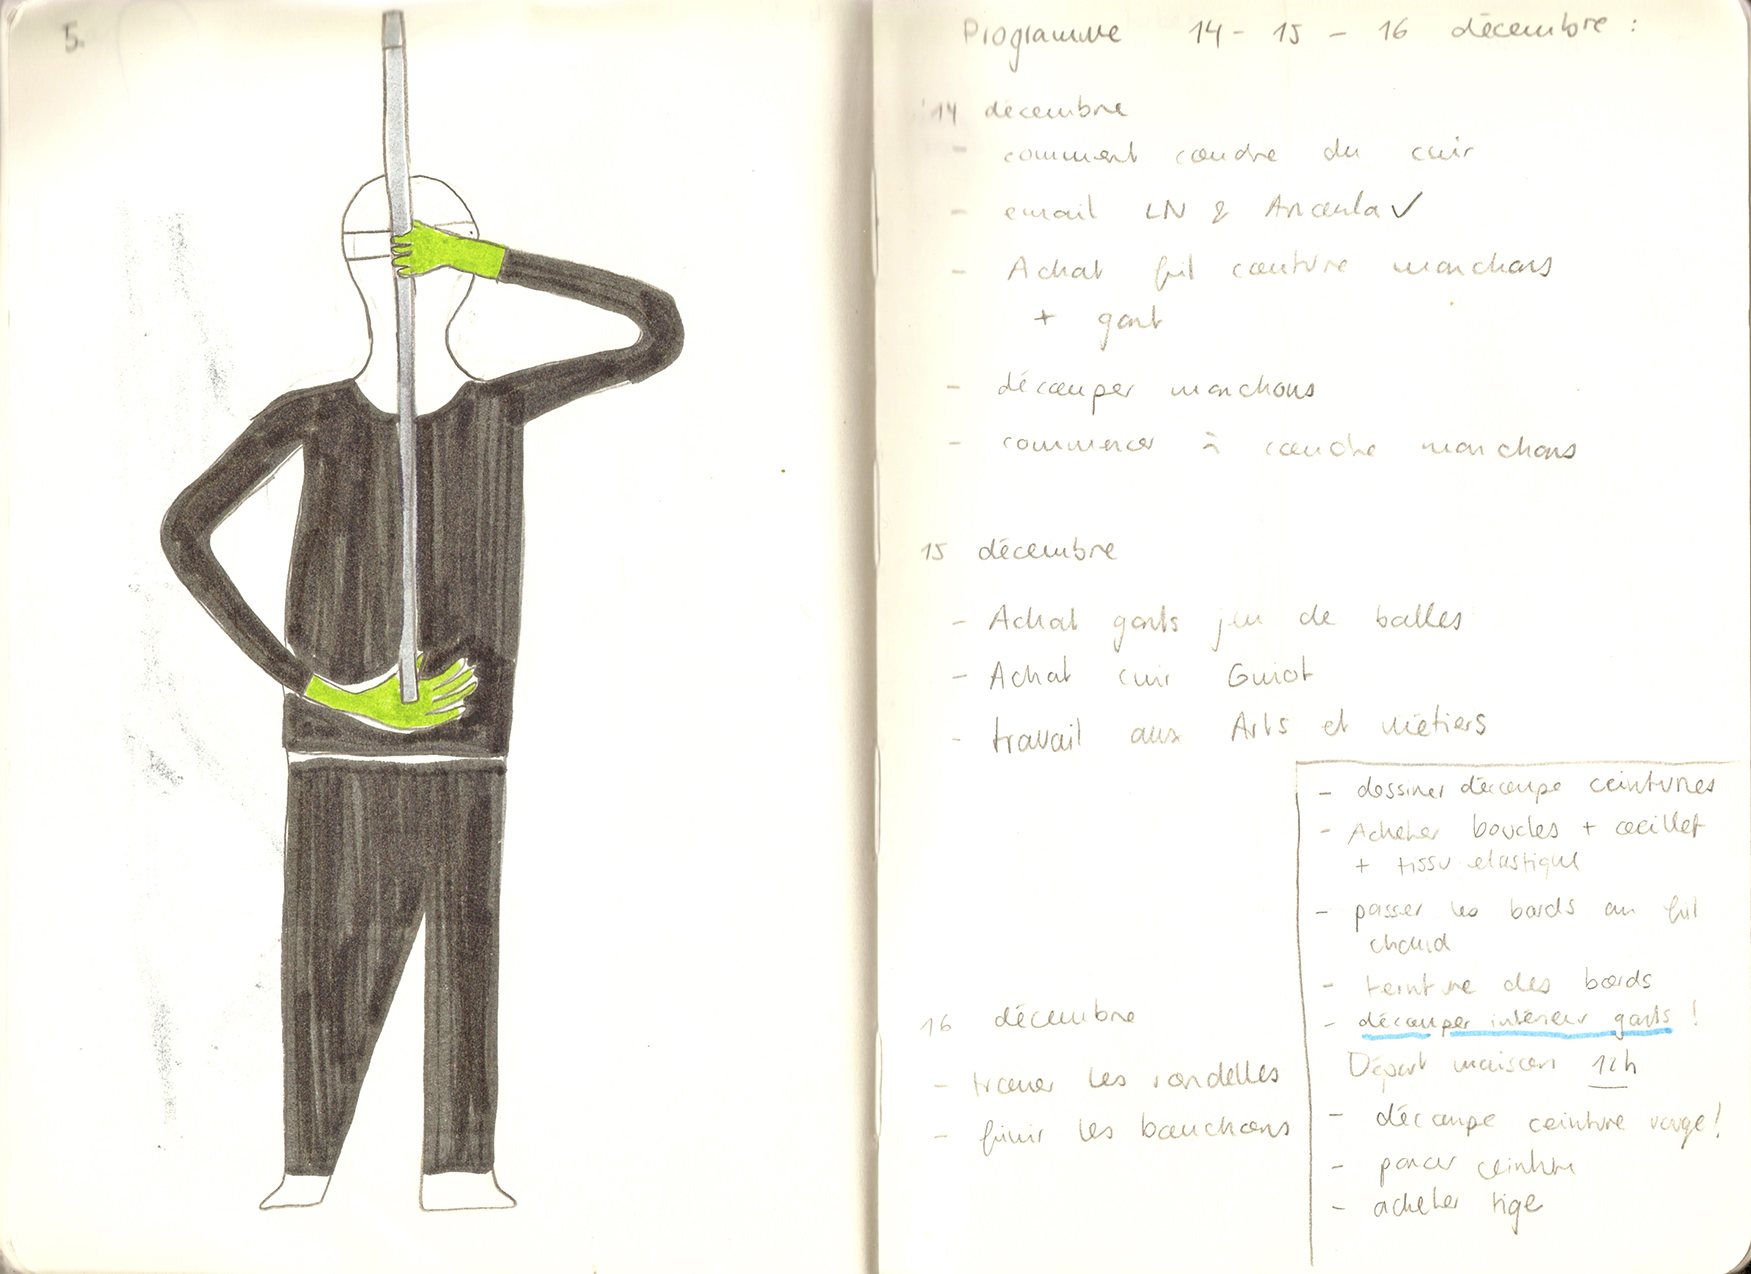 5.
Programme 14 - 15 - 16 décembre :
14 décembre
- comment coudre du cuir
- email LN & Ancaula ✓
- Achat fil couture manchons
+ gant
- découper manchons
- commencer à coudre manchons
15 décembre
- Achat gants jeu de balles
- Achat cuir Guiot
- travail aux Arts et métiers
16 décembre
- trouer les rondelles
- finir les bouchons
- dessiner découpe ceintures
- Acheter boucles + oeillet
+ tissu elastique
- passer les bords au fil
chaud
- teinture des bords
- découper intérieur gants !
Départ maison 12h
- découpe ceinture rouge !
- poncer ceinture
- acheter tige